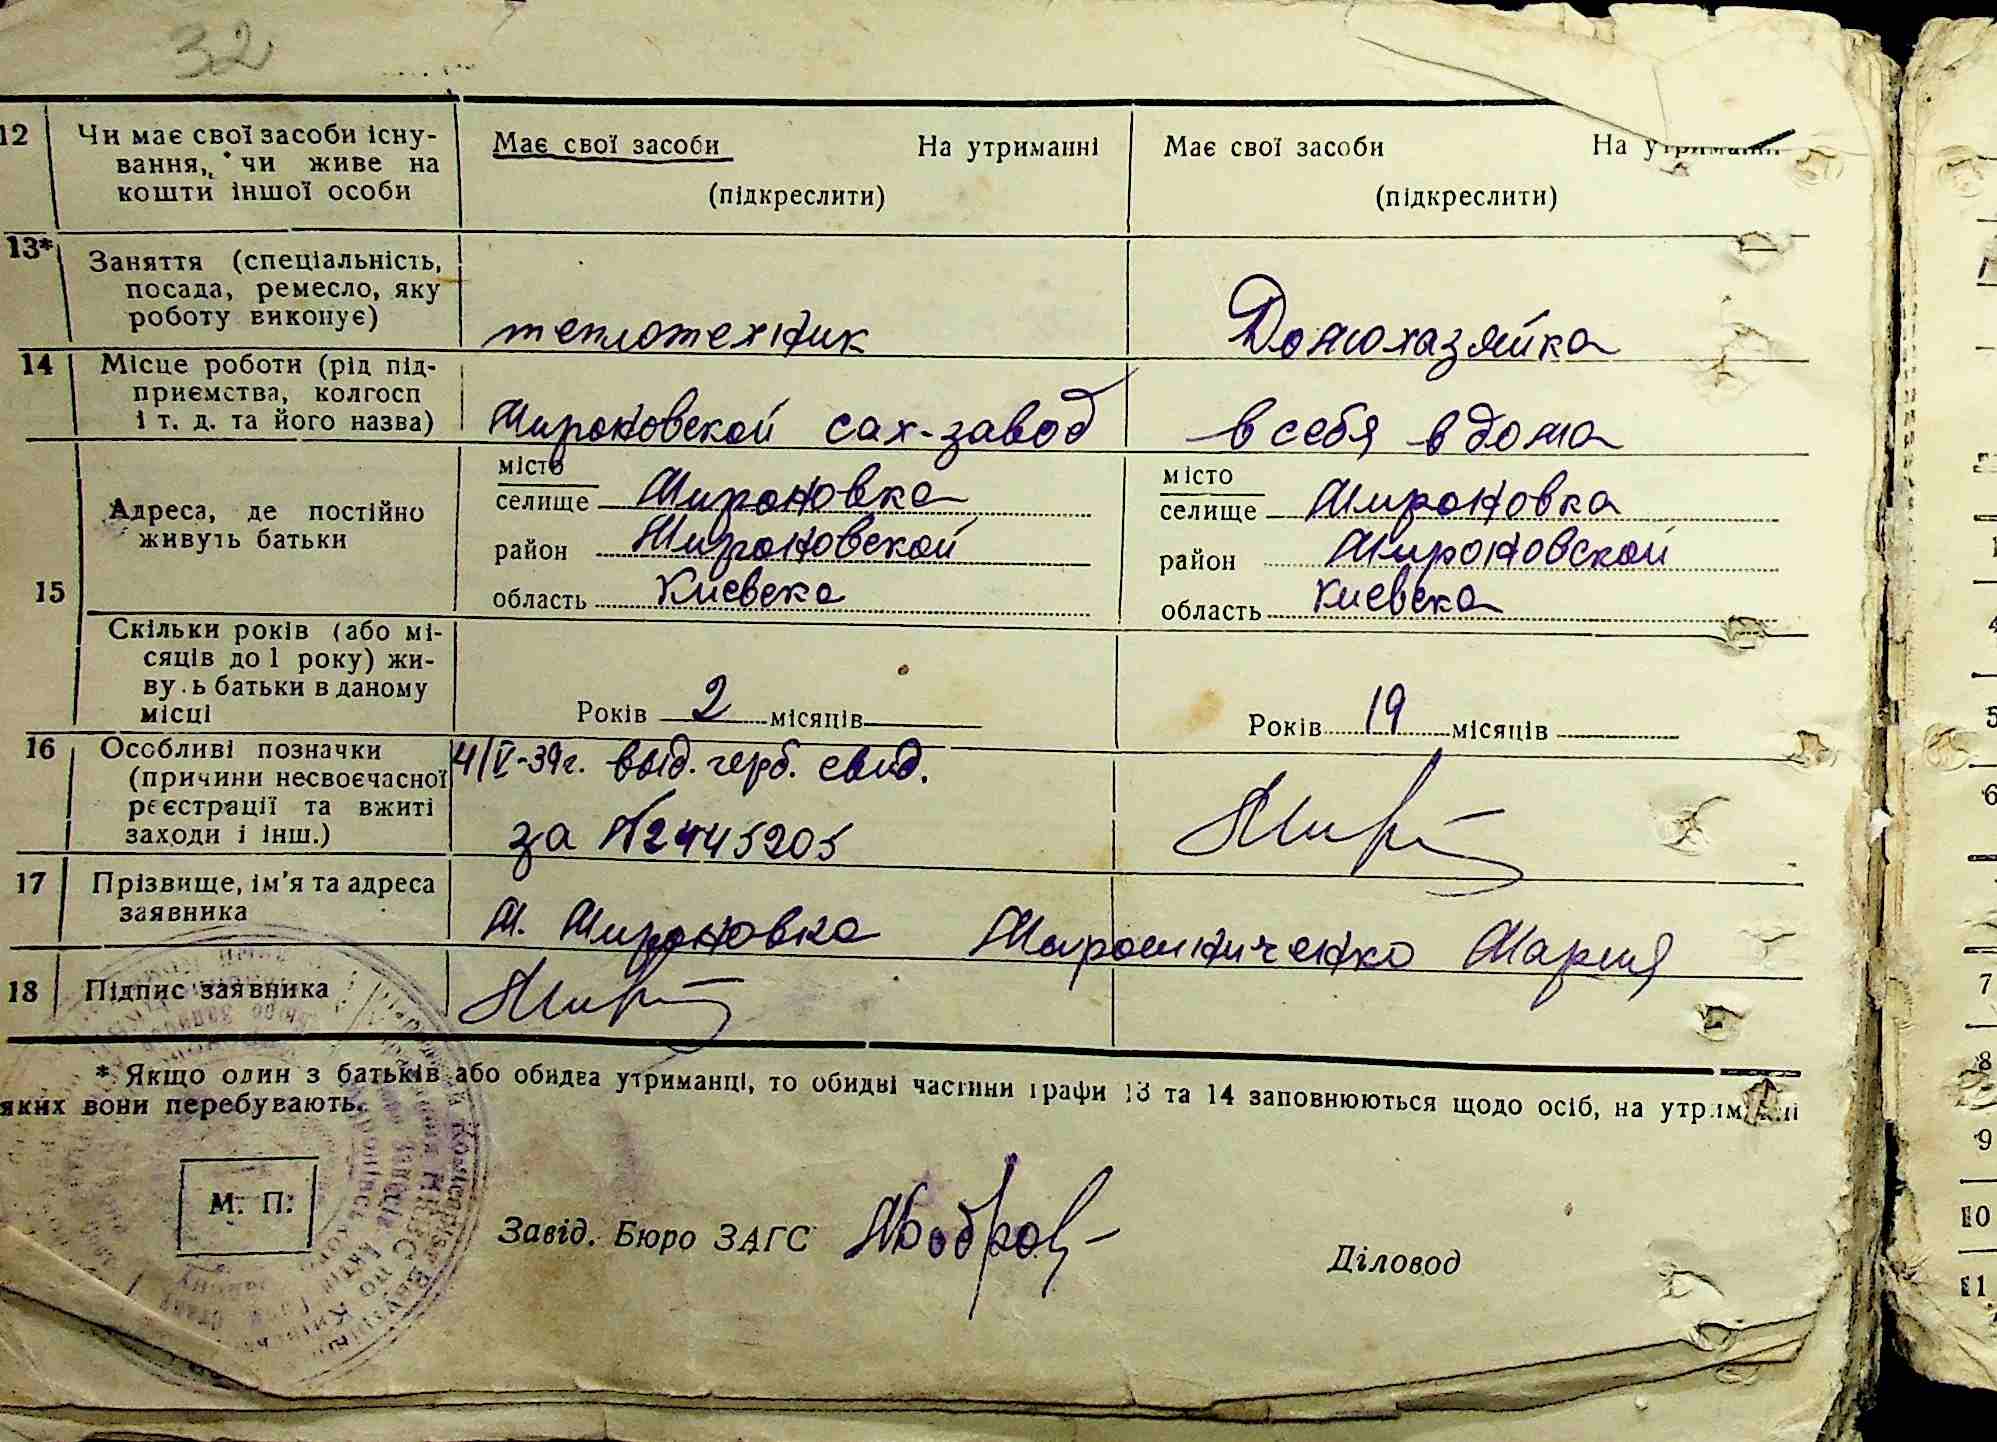 32
12 Чи має свої засоби існу-
вання, чи живе на
кошти іншої особи
Має свої засоби На утриманні
(підкреслити)
Має свої засоби На утриманні
(підкреслити)
13* Заняття (спеціальність,
посада, ремесло, яку
роботу виконує)
теплотехник
Домохазяйка
14 Місце роботи (рід під-
приємства, колгосп
і т. д. та його назва)
Мироновской сах-завод
в себя в дома
15
Адреса, де постійно
живуть батьки
місто
селище Мироновка
район Мироновской
область Киевска
місто
селище Мироновка
район Мироновской
область Киевска
Скільки років (або мі-
сяців до 1 року) жи-
ву ь батьки в даному
місці
Років 2 місяців
Років 19 місяців
16 Особливі позначки
(причини несвоєчасної
реєстрації та вжиті
заходи і інш.)
4/V-39г. выд. герб. свид.
за №2445205
17 Прізвище, ім'я та адреса
заявника
М. Мироновка Мирошниченко Мария
18 Підпис заявника
* Якщо один з батьків або обидва утриманці, то обидві частини графи 13 та 14 заповнюються щодо осіб, на утриманні
яких вони перебувають.
М. П.
Завід. Бюро ЗАГС
Діловод
4
5
6
7
8
9
10
11